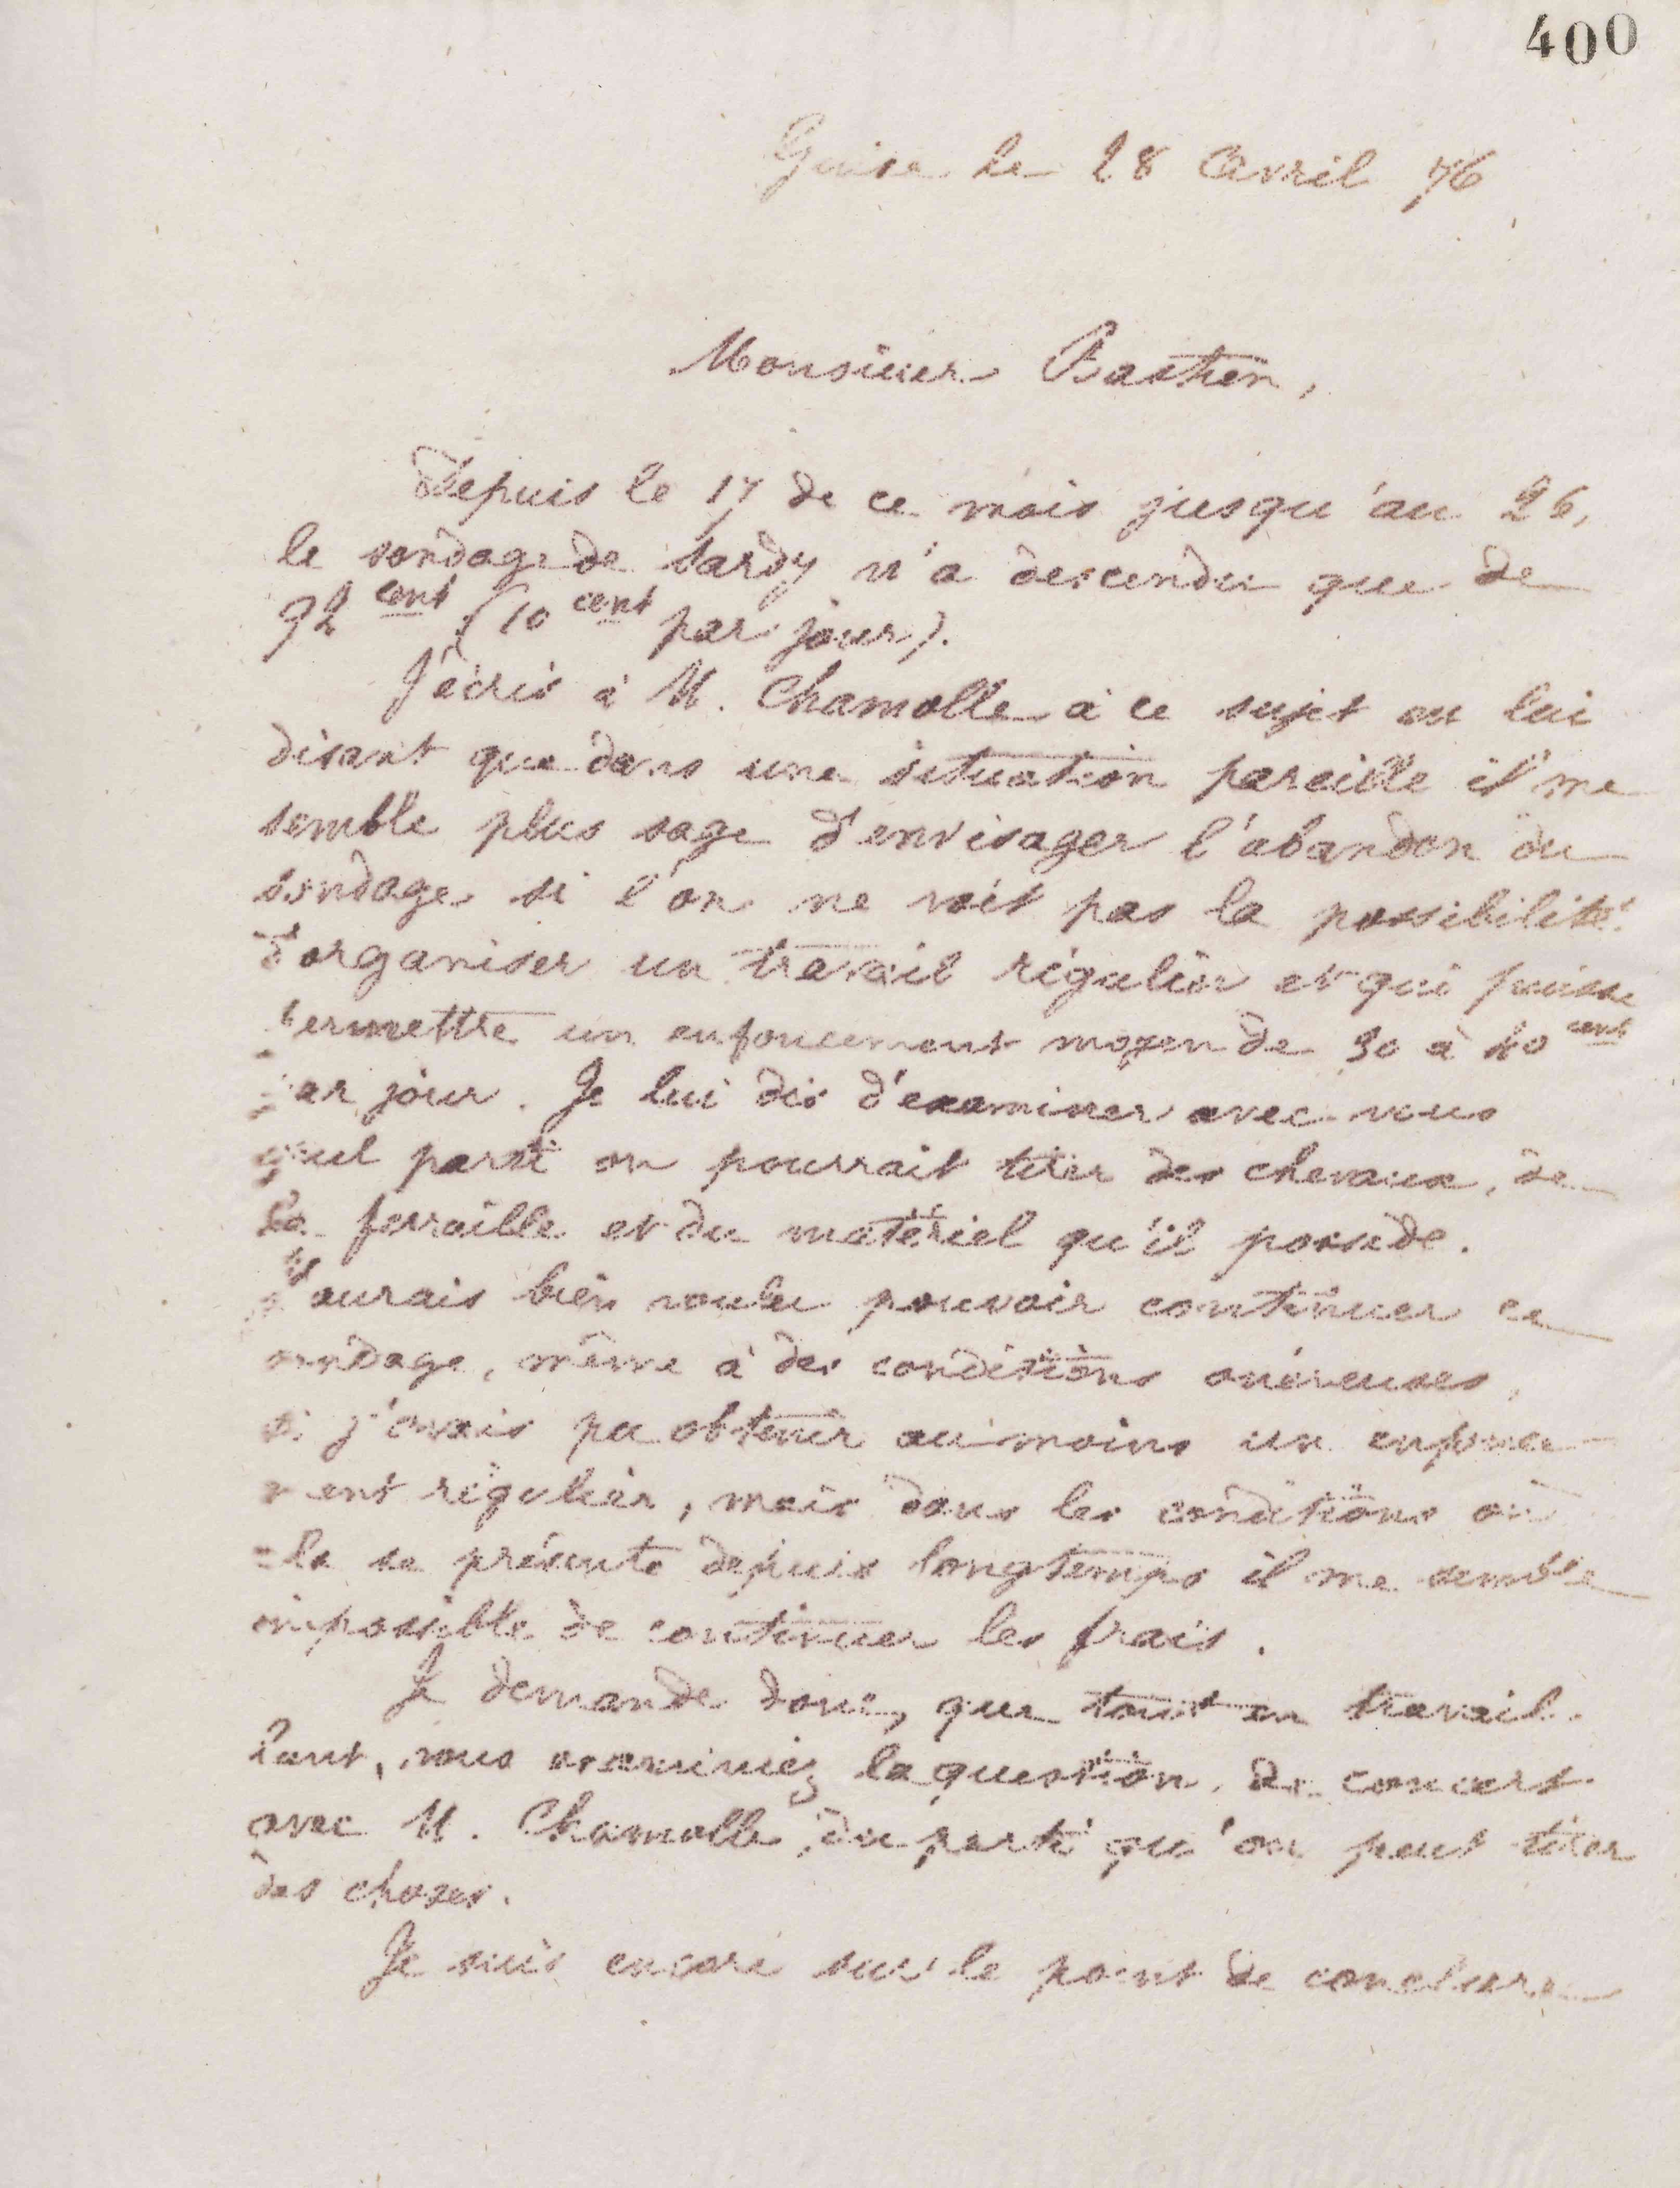 400
Guise le 28 Avril 76
Monsieur Bastien,
Depuis le 17 de ce mois jusqu'au 26,
le sondage de Sardy n'a descendu que de
92 cent (10 cent par jour).
J'écris à M. Chamolle à ce sujet en lui
disant que dans une situation pareille il me
semble plus sage d'envisager l'abandon du
sondage si l'on ne voit pas la possibilité
d'organiser un travail régulier et qui puisse
permettre un enfoncement moyen de 30 à 40 cent
par jour. Je lui dis d'examiner avec vous
quel parti on pourrait tirer des chevaux, de
la ferraille et du matériel qu'il possède.
J'aurais bien voulu pouvoir continuer ce
ondage, même à des conditions onéreuses,
si j'avais pu obtenir au moins un enfonce
ment régulier, mais dans les conditions où
ela se présente depuis longtemps il me semble
impossible de continuer les frais.
Je demande donc, que tout en travail-
lant, vous examiniez la question, de concert
avec M. Chamolle, du parti qu'on peut tirer
des choses.
Je suis encore sur le point de conclure